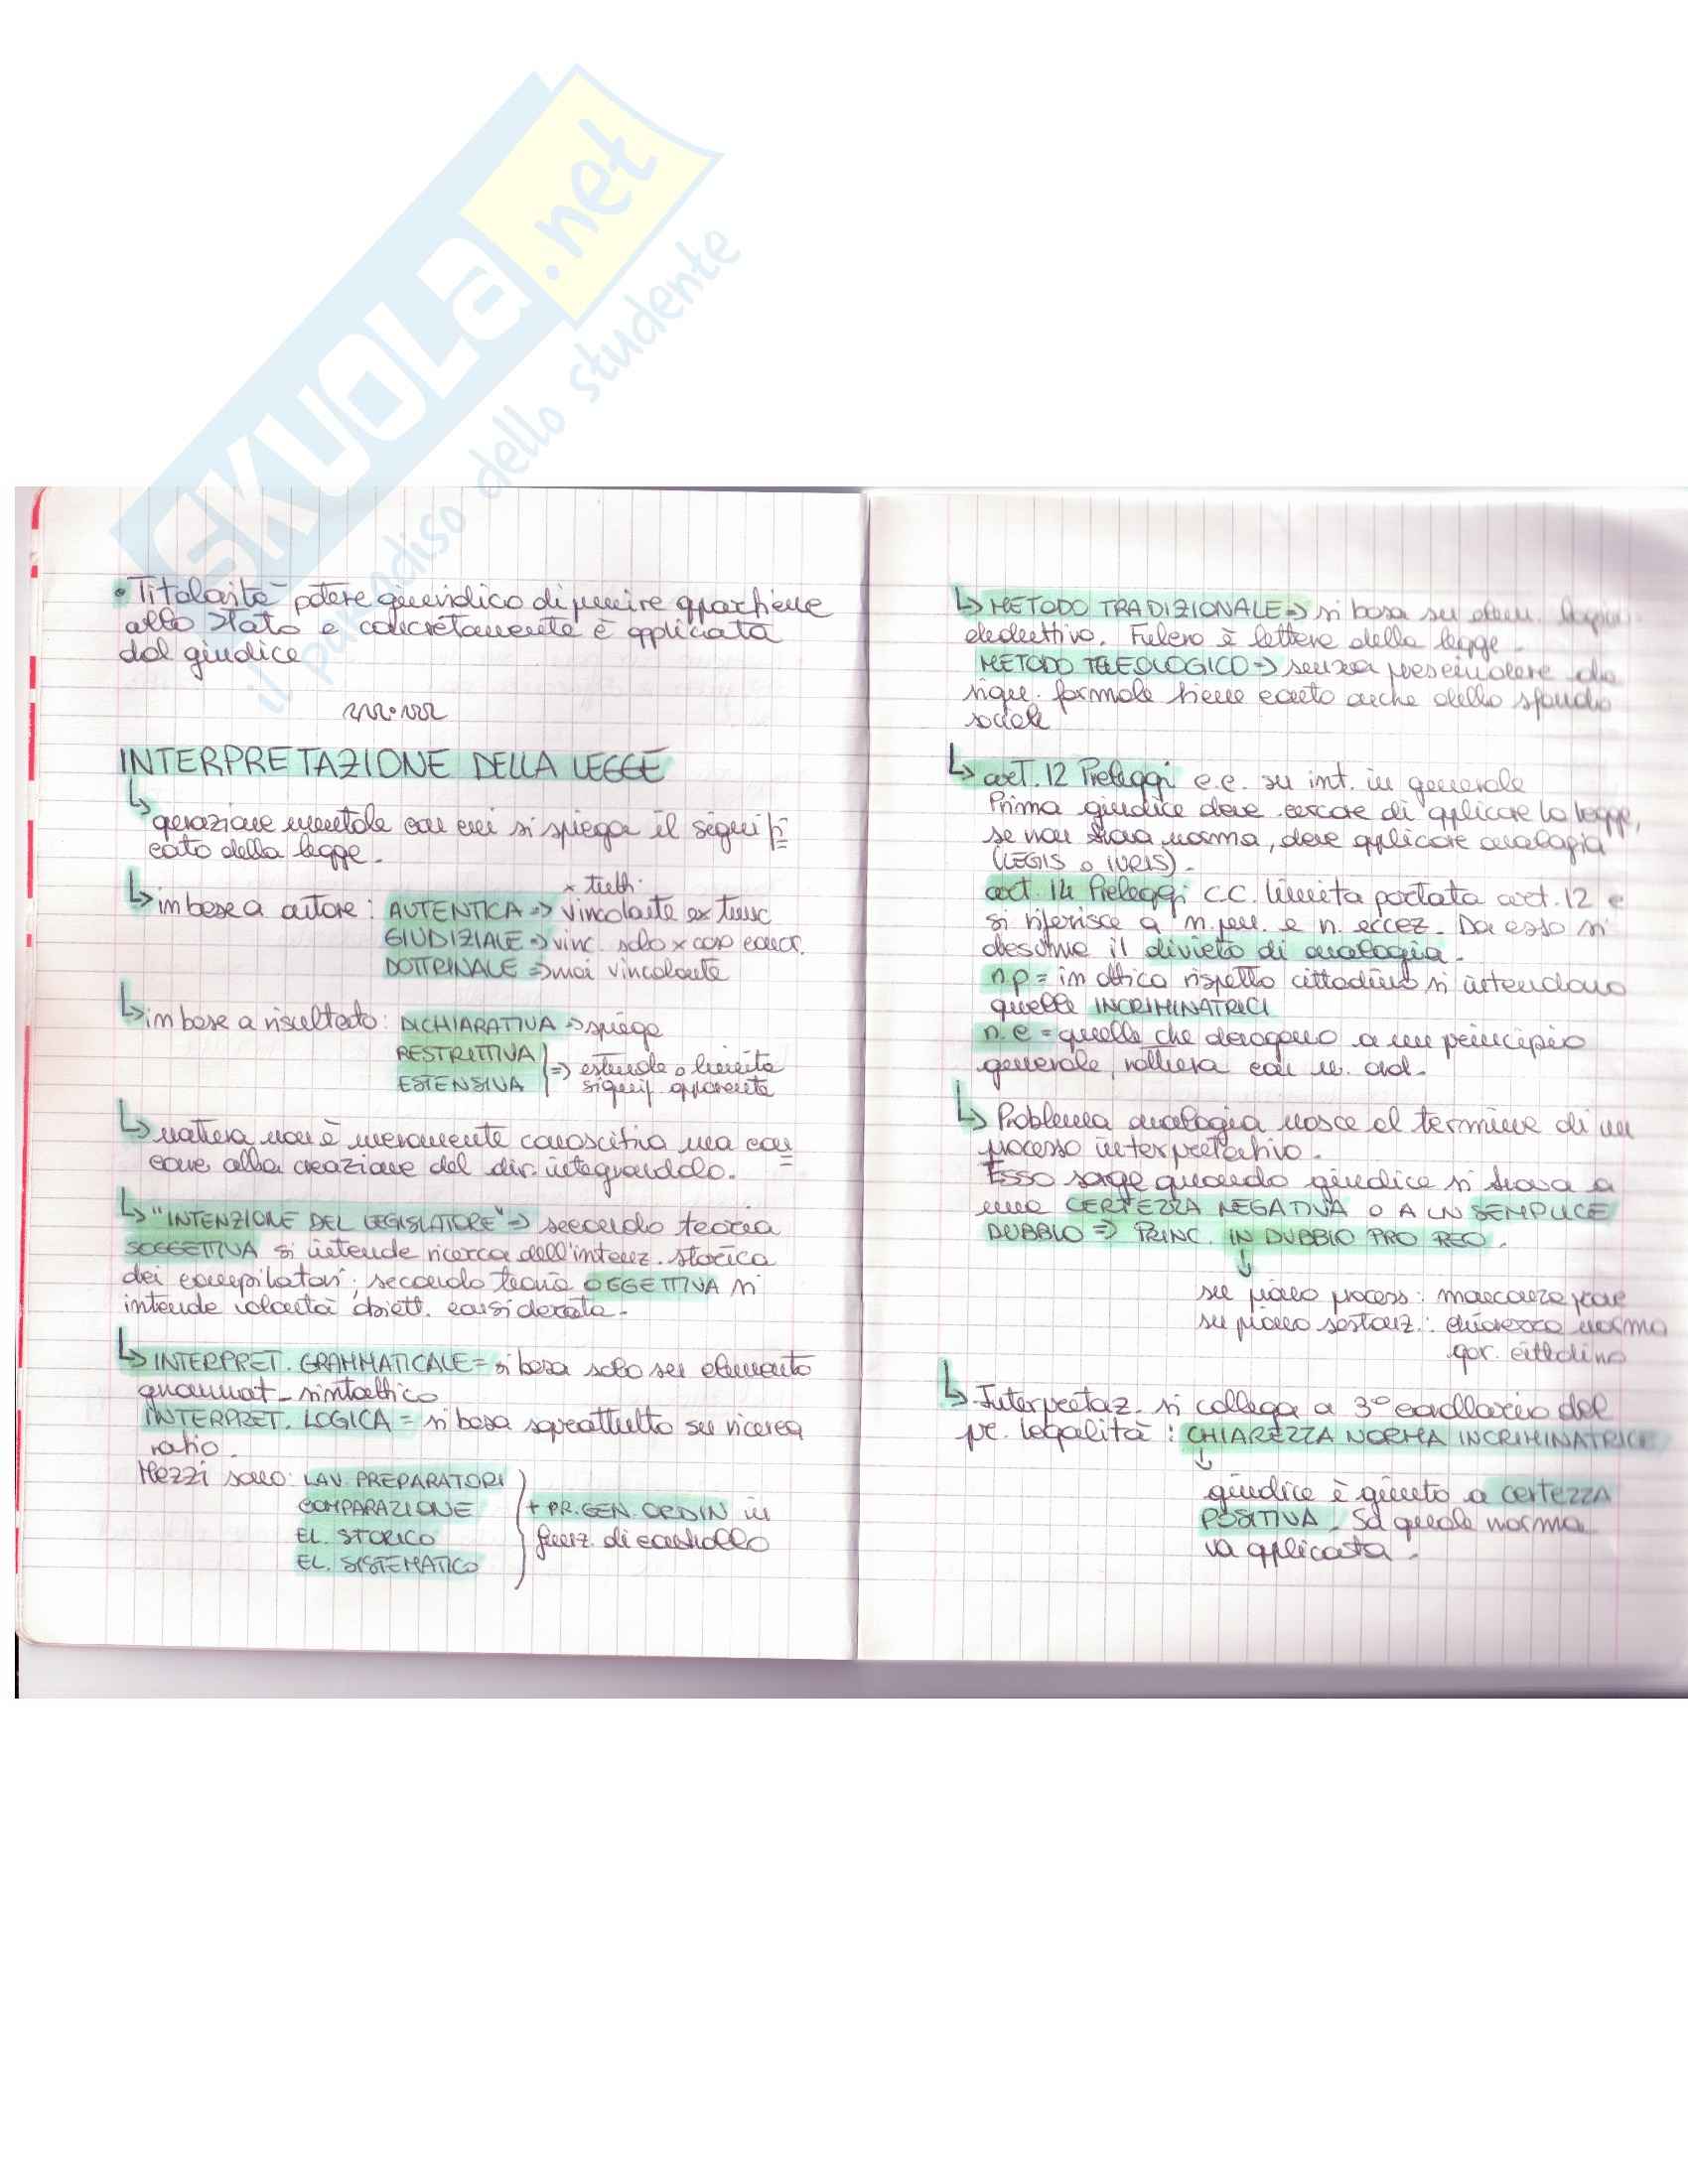 SKUOLA.net
il paradiso dello studente
• Titolarità potere giuridico di punire appartiene
allo Stato e concretamente è applicata
dal giudice
INTERPRETAZIONE DELLA LEGGE
↳ operazione mentale con cui si spiega il signifi=
cato della legge.
x tutti
↳ in base a autore: AUTENTICA => vincolante ex tunc
GIUDIZIALE => vinc. solo x caso concr.
DOTTRINALE => mai vincolante
↳ in base a risultato: DICHIARATIVA => spiega
RESTRITTIVA
ESTENSIVA } => estende o limita
signif. apparente
↳ natura non è meramente conoscitiva ma con=
corre alla creazione del dir. integrandolo.
↳ "INTENZIONE DEL LEGISLATORE" => secondo teoria
SOGGETTIVA si intende ricerca dell'intenz. storica
dei compilatori; secondo teoria OGGETTIVA si
intende volontà obiett. considerata.
↳ INTERPRET. GRAMMATICALE = si basa solo su elemento
grammat-sintattico
INTERPRET. LOGICA = si basa soprattutto su ricerca
ratio.
Mezzi sono: LAV. PREPARATORI
COMPARAZIONE
EL. STORICO
EL. SISTEMATICO } + PR. GEN. ORDIN in
funz. di controllo
↳ METODO TRADIZIONALE => si basa su elem. logico
deduttivo. Fulcro è lettera della legge.
METODO TELEOLOGICO => senza prescindere da
sign. formale tiene conto anche dello sfondo
sociale
↳ art. 12 Preleggi c.c. su int. in generale
Prima giudice deve cercare di applicare la legge,
se non trova norma, deve applicare analogia
(LEGIS o IURIS).
art. 14 Preleggi c.c. limita portata art. 12 e
si riferisce a n. pen. e n. eccez. Da esso si
desume il divieto di analogia.
n.p = in ottica rispetto cittadino si intendono
quelle INCRIMINATRICI
n.e = quelle che derogano a un principio
generale, con
↳ Problema analogia nasce al termine di un
processo interpretativo.
Esso sorge quando giudice si trova a
una CERTEZZA NEGATIVA O A UN SEMPLICE
DUBBIO => PRINC. IN DUBBIO PRO REO.
↓
su piano process: mancanza prove
su piano sostanz.: chiarezza norma
gar. cittadino
↳ Interpretaz. si collega a 3° corollario del
pr. legalità: CHIAREZZA NORMA INCRIMINATRICE
↓
giudice è giunto a CERTEZZA
POSITIVA. Sa quale norma
va applicata.